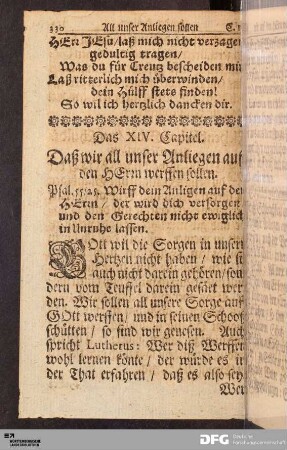 330 All unser Anliegen sollen C.
HErr JEsu / laß mich nicht verzagen
gedultig tragen /
Was du für Creutz bescheiden mir
Laß ritterlich mich überwinden /
dein Hülff stets finden!
So wil ich hertzlich dancken dir.
Das XIV. Capitel.
Daß wir all unser Anliegen auf
den HErrn werffen sollen.
Psal. 55: 23. Wirff dein Anligen auf den
HErrn / der wird dich versorgen
und den Gerechten nicht ewiglich
in Unruhe lassen.
GOtt wil die Sorgen in unsern
Hertzen nicht haben / wie si
auch nicht darein gehören / son
dern vom Teuffel darein gesäet wer
den. Wir sollen all unsere Sorge auf
GOtt werffen / und in seinen Schoos
schütten / so sind wir genesen. Auch
spricht Lutherus: Wer diß Werffen
wohl lernen könte / der würde es in
der That erfahren / daß es also sey.
Wer
DFG Deutsche
Forschungsgemeinschaft